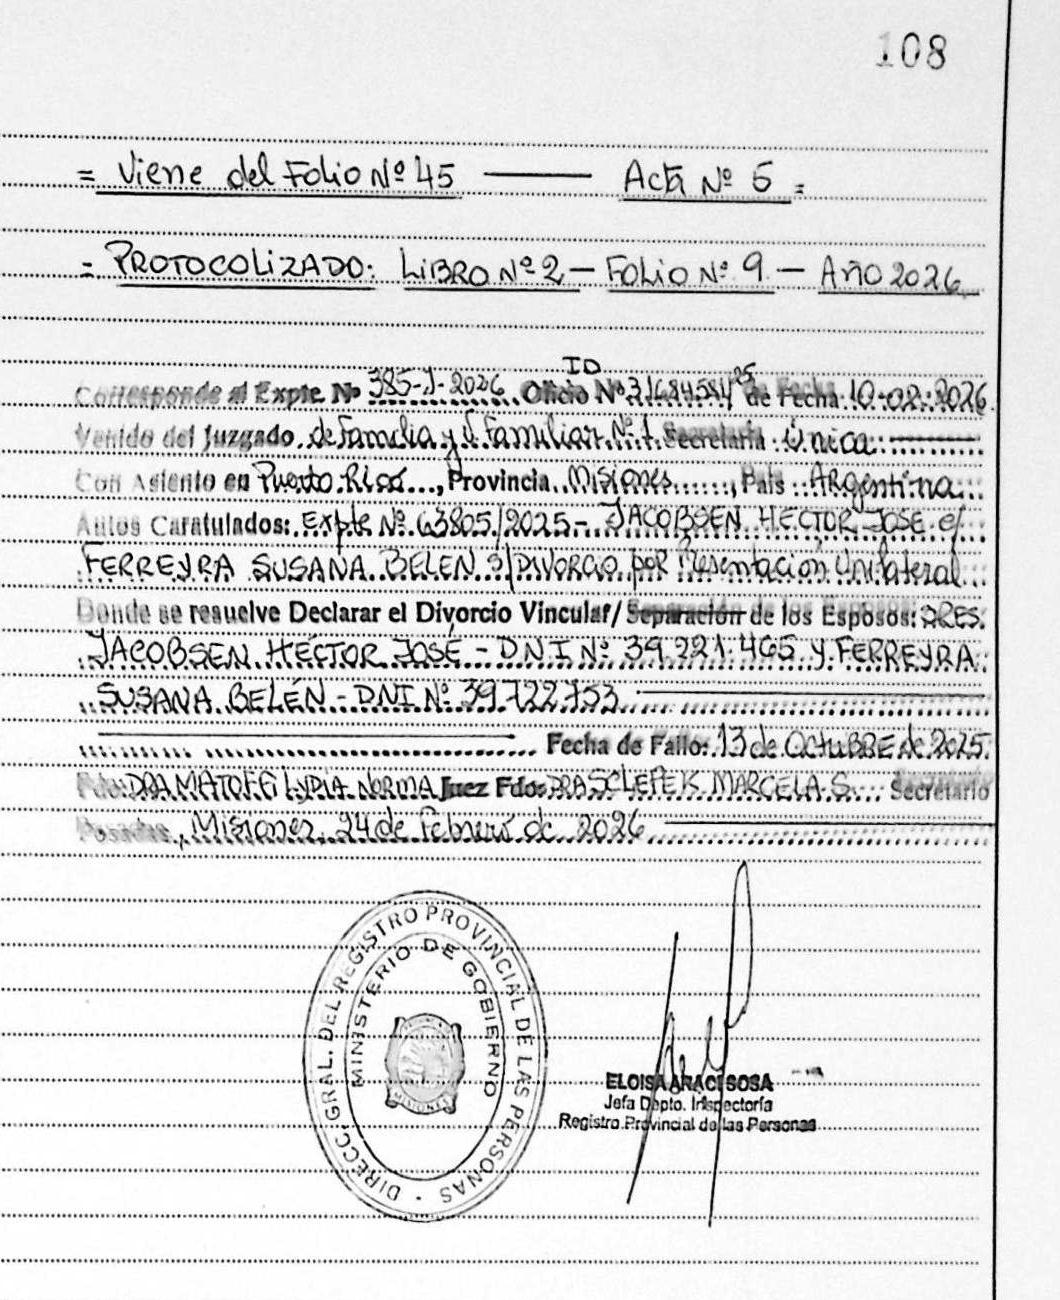 108
= Viene del Folio Nº 45 —— Acta Nº 5 =
= PROTOCOLIZADO: LIBRO Nº 2 – FOLIO Nº 9 – AÑO 2026
ID
Corresponde al Expte. Nº 385-J-2026 Oficio Nº de Fecha 10-02-2026
Venido del Juzgado de Familia y V. Familiar Nº 1 Secretaria Única
Con Asiento en Puerto Rico, Provincia Misiones, Pais Argentina
Autos Caratulados: Expte Nº 63805/2025 – JACOBSEN HECTOR JOSE c/
FERREYRA SUSANA BELEN S/DIVORCIO por Presentación Unilateral
Donde se resuelve Declarar el Divorcio Vincular/Separación de los Esposos: SRES.
JACOBSEN HÉCTOR JOSÉ – DNI Nº 39.221.465 Y FERREYRA
SUSANA BELÉN – DNI Nº 39.722.753
Fecha de Fallo: 13 de OCTUBRE de 2025
Fdo: DRA LYDIA NORMA Juez Fdo: DRA SCLEPEK MARCELA S. Secretario
Posadas, Misiones, 24 de febrero de 2026
DIRECC. GRAL. DEL REGISTRO PROVINCIAL DE LAS PERSONAS
MINISTERIO DE GOBIERNO
MISIONES
ELOISA ARACI SOSA
Jefa Dpto. Inspectoría
Registro Provincial de las Personas